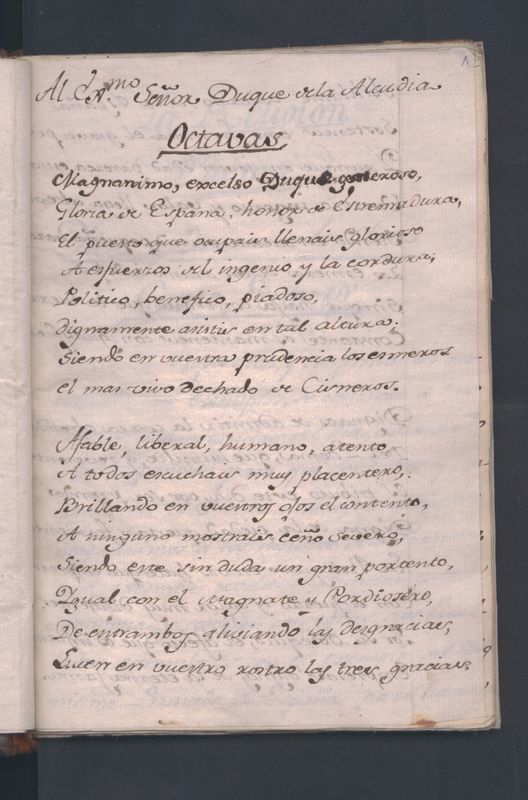 1
Al Ex.mo Señor Duque de la Alcudia
Octavas
Magnanimo, excelso Duque generoso,
Gloria de España, honor de Estremadura,
El puesto que ocupais llenais glorioso
A esfuerzos del ingenio y la cordura;
Politico, benefico, piadoso,
dignamente existis en tal altura;
Siendo en vuestra prudencia los esmeros
el mas vivo dechado de Cisneros.
Afable, liberal, humano, atento
A todos escuchais muy placentero,
Brillando en vuestros ojos el contento,
A ninguno mostrais ceño severo,
Siendo este sin duda un gran portento,
Ygual con el Magnate y Pordiosero,
De entrambos aliviando las desgracias,
Lucen en vuestro rostro las tres gracias